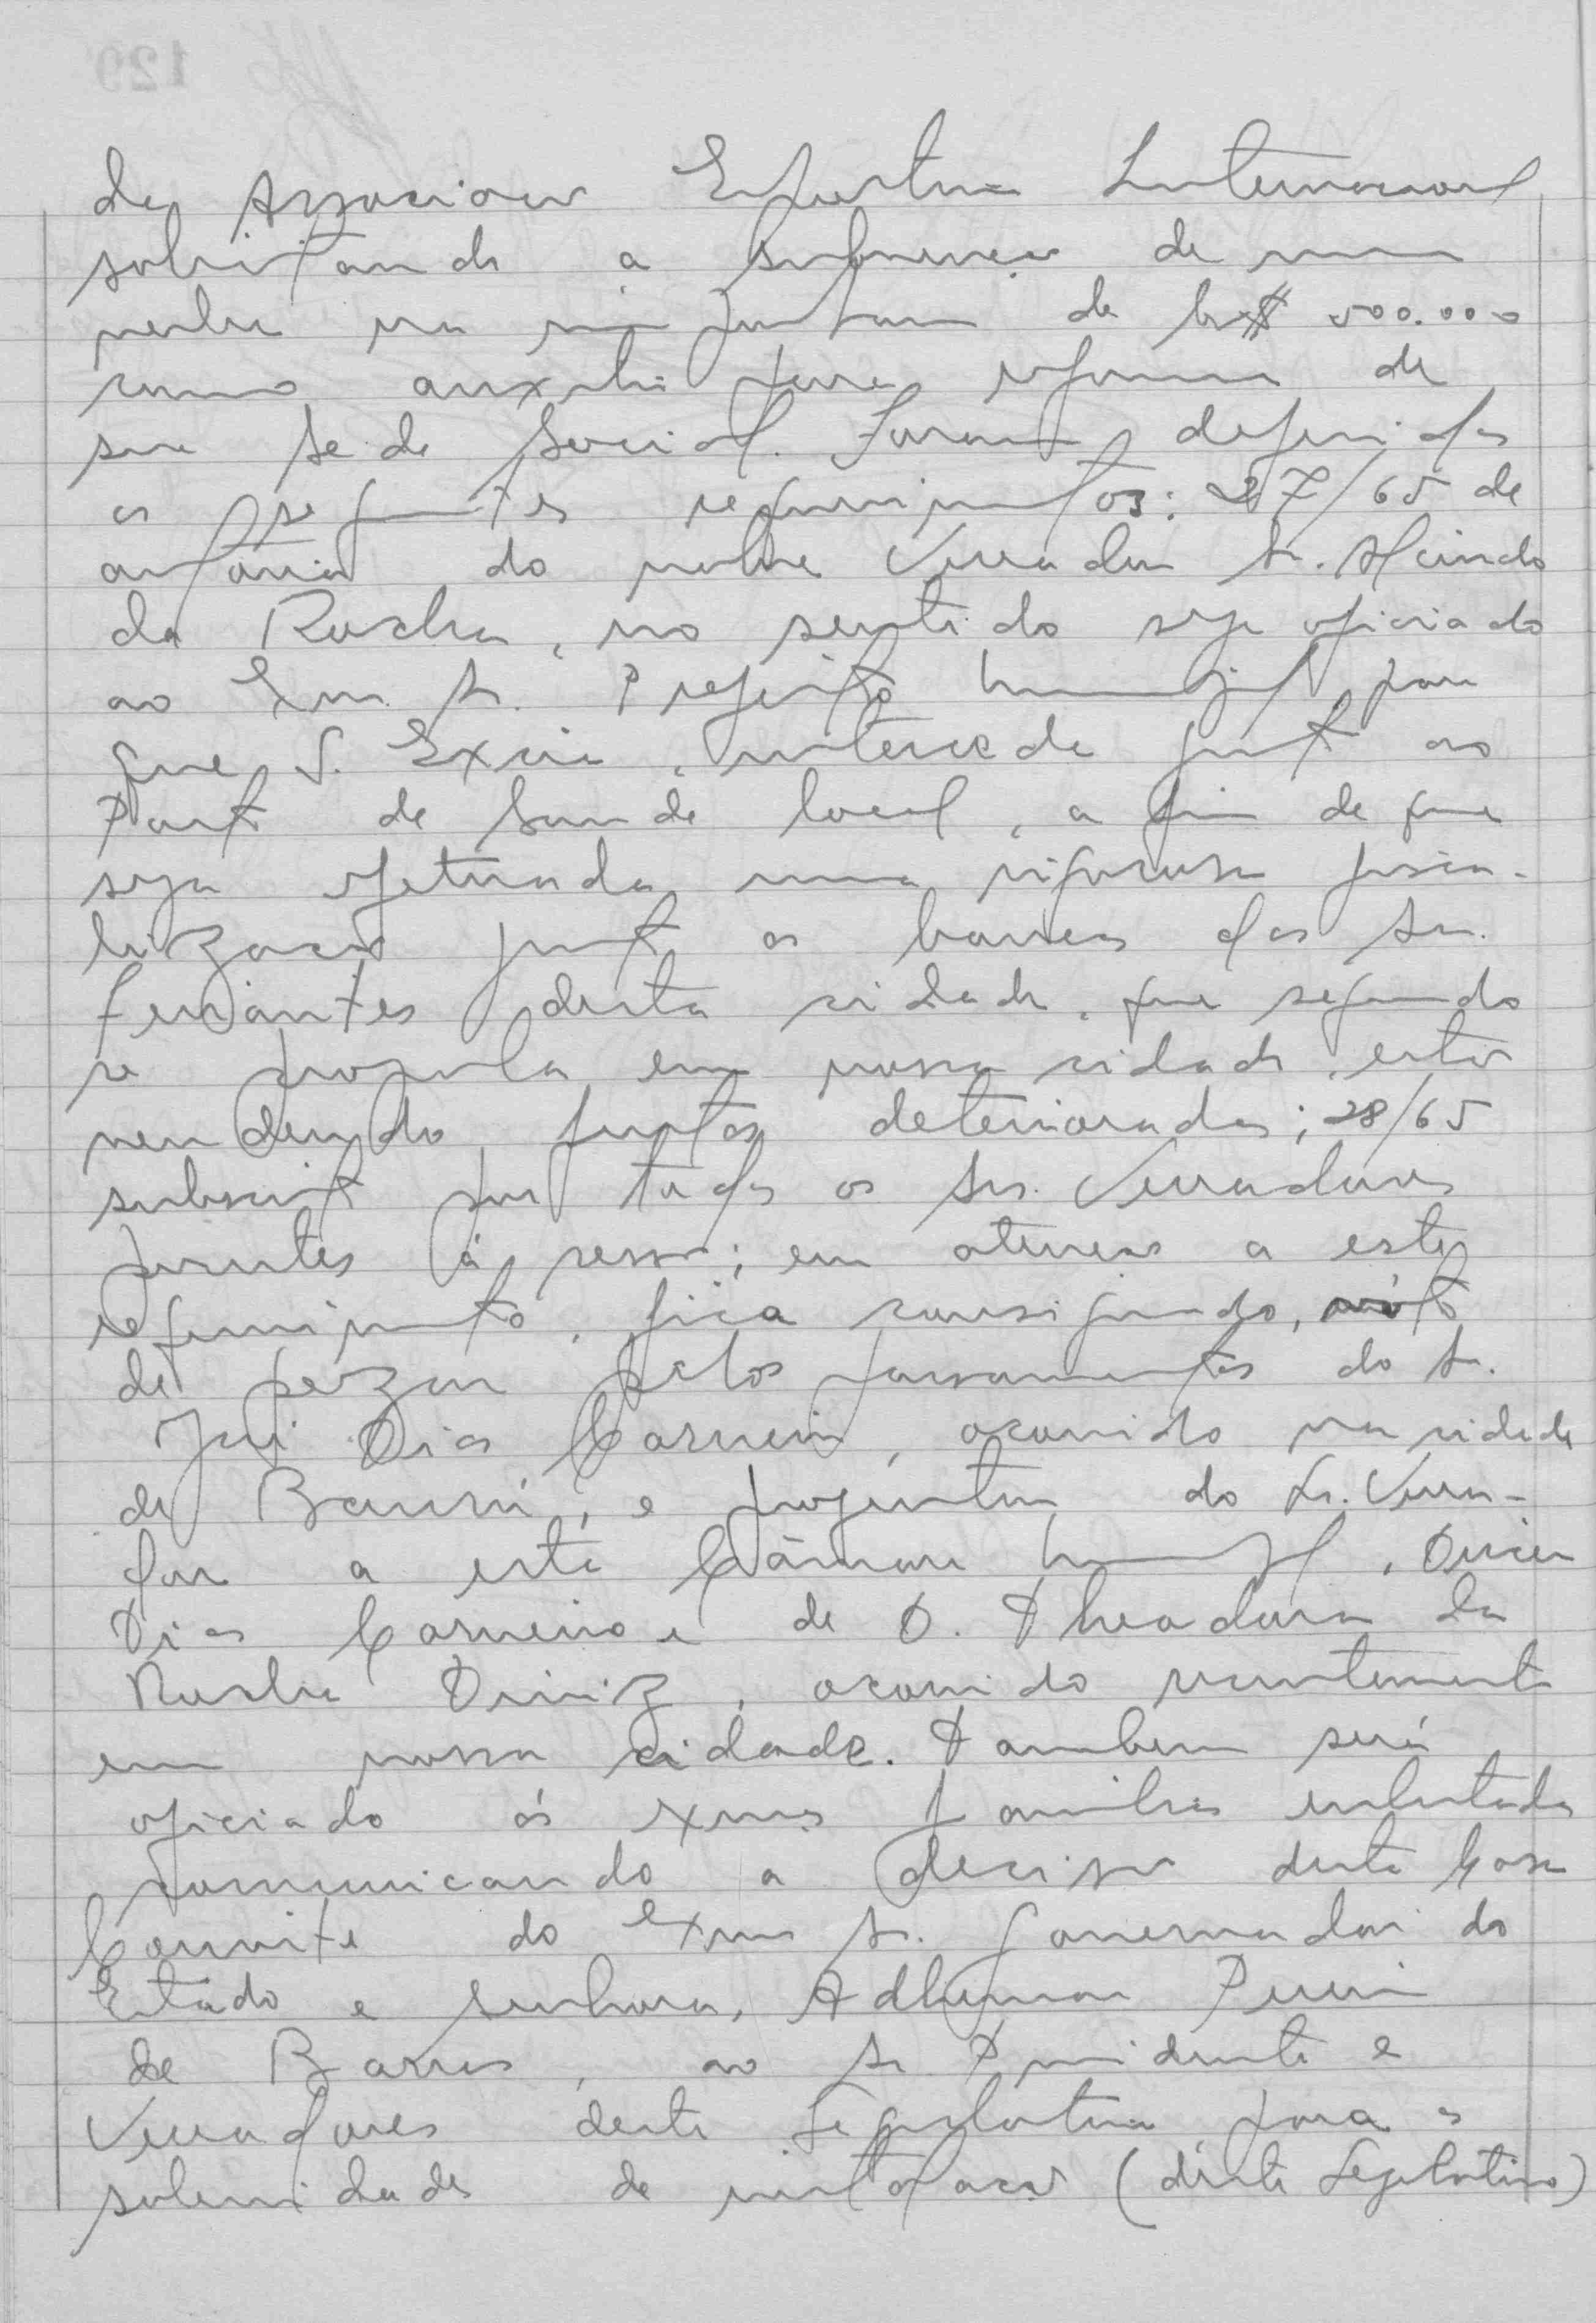 da Associação Esportiva Internacional
solicitando a subvenção de uma
verba na importancia de Cr$ 500.000
como auxilio para reforma de
sua sede social. Foram deferidos
os seguintes requerimentos: 27/65 de
autoria do nobre Vereador Sr. Alcindo
da Rocha, no sentido seja oficiado
ao Exmo. Sr. Prefeito Municipal para
que S. Excia, interceda junto ao
Posto de Saude local, a fim de que
seja efetuada uma rigorosa fisca-
lização junto as bancas dos Srs.
feirantes desta cidade, que segundo
se propala em nossa cidade, estão
vendendo frutas deterioradas; 28/65
subscrito por todos os Srs. Vereadores
presentes á sessão; em atenção a este
requerimento, fica consignado, voto
de pezar pelos passamentos do Sr.
José Dias Carneiro, ocorrido na cidade
de Bauru, e progenitor do Sr. Verea-
dor a esta Câmara Municipal,
Dias Carneiro e de D. Theodora da
Rocha Diniz, ocorrido recentemente
em nossa cidade. Tambem será
oficiado ás Exmas familias enlutadas
comunicando a decisão desta Casa
Convite do Exmo Sr. Governador do
Estado e senhora, Adhemar Pereira
de Barros, ao Sr. Presidente e
Vereadores desta Legislatura para a
solenidade de instalação (deste Legislativo)